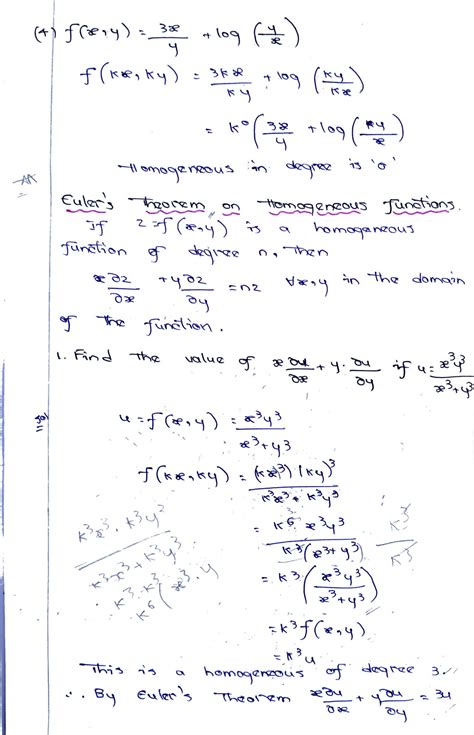 (4) f(x,y) = 3x/y + log (y/x)
f(kx, ky) = 3kx/ky + log (ky/kx)
= k⁰ (3x/y + log (ky/x)
Homogeneous in degree is '0'
Euler's Theorem on Homogeneous Functions.
If z=f(x,y) is a homogeneous
function of degree n, then
x∂z/∂x + y∂z/∂y = nz ∀x,y in the domain
of the function.
1. Find the value of x ∂u/∂x + y. ∂u/∂y if u = x³y³/x³+y³
u = f(x,y) = x³y³/x³+y³
f(kx, ky) = (kx³) (ky)³/k³x³ + k³y³
= k⁶ x³y³/k³(x³+y³)
= k³ (x³y³/x³+y³)
= k³ f(x,y)
= k³u
This is a homogeneous of degree 3.
∴ By Euler's Theorem x∂u/∂x + y∂u/∂y = 3u
k³x³ . k³y²
k³x³ + k³y³
k³ . k³
k⁶ ( x³ . y
k³/k³